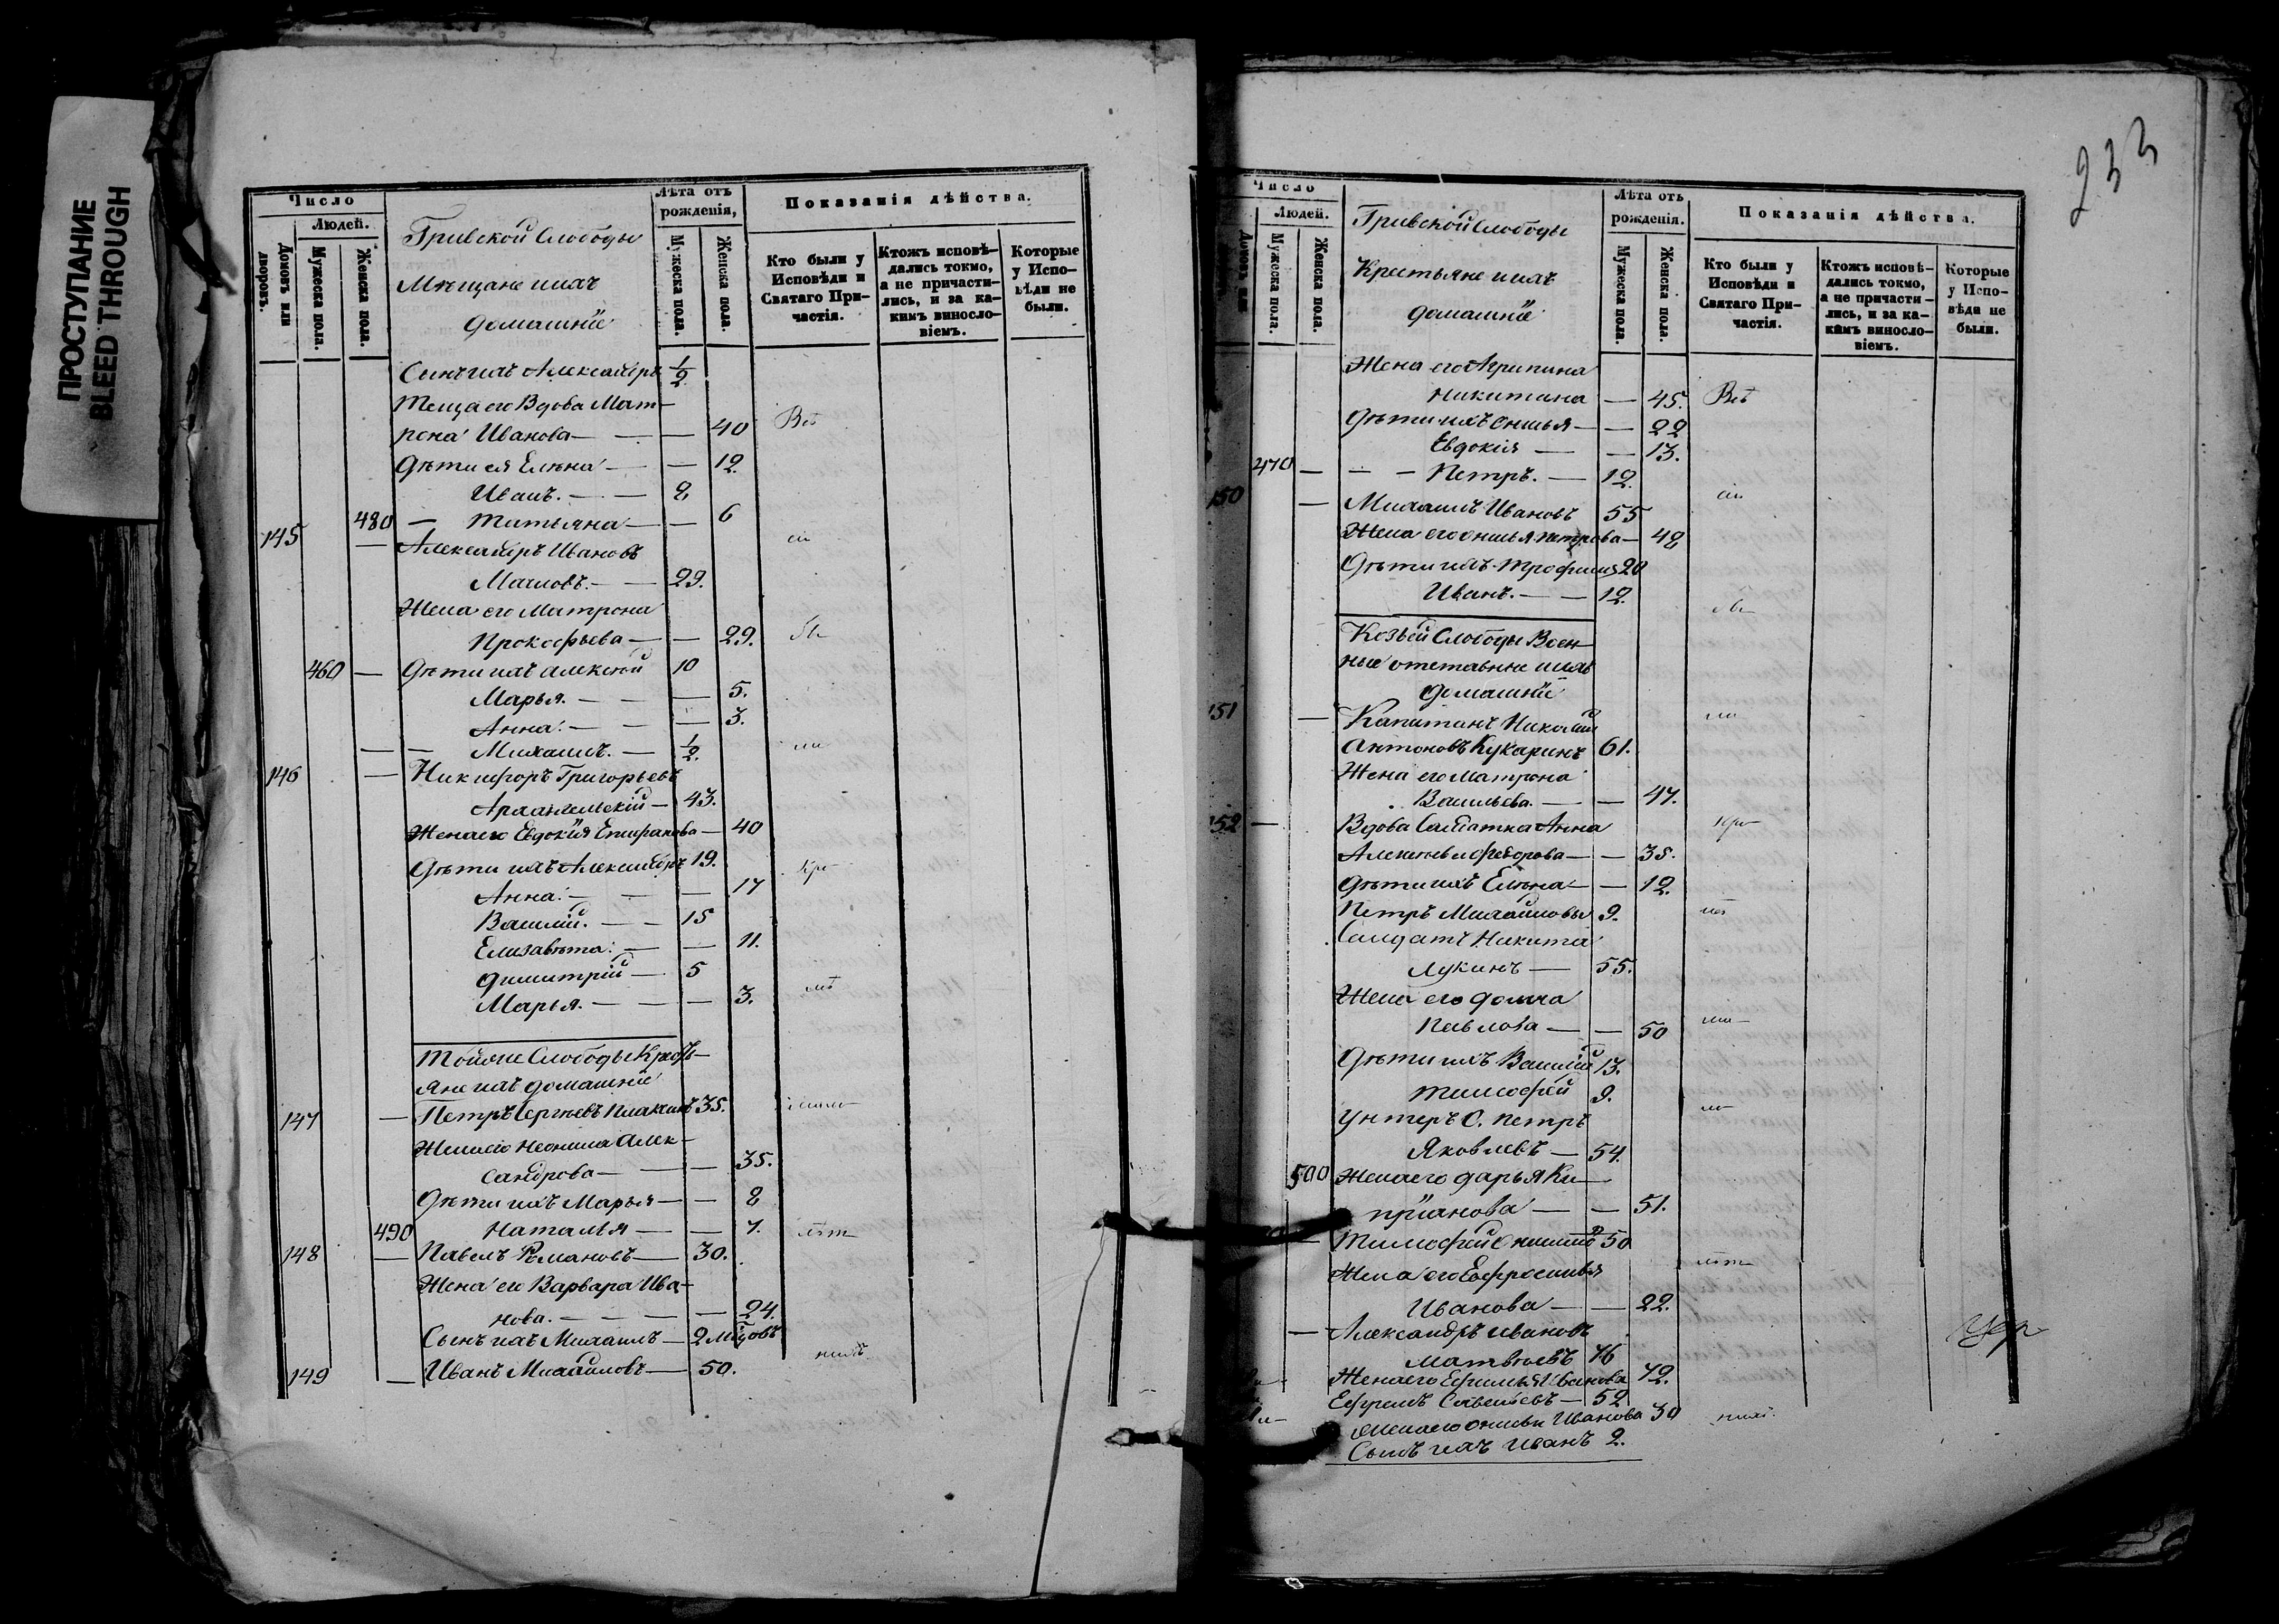 ПРОСТУПАНИЕ
BLEED THROUGH
Число
Людей.
Домовъ или дворовъ.
Мужеска пола.
Женска пола.
Гривской Слободы
Мѣщане и ихъ
домашніе
Лѣта отъ
рожденія,
Мужеска пола.
Женска пола.
Показанія дѣйства.
Кто были у
Исповѣди и
Святаго При-
частія.
Ктожъ исповѣ-
дались токмо,
а не причасти-
лись, и за ка-
кимъ виносло-
віемъ.
Которые
у Испо-
вѣди не
были.
Сынъ ихъ Александръ 1/2
Теща его Вдова Мат-
рона Иванова — — 40
Дѣти ея Елена — — 12
Иванъ. — — 8
480 — Татьяна — — 6
145 — Александръ Ивановъ
29.
Жена его Матрона
Прокофьева — — 29.
460 — Дѣти ихъ Алексѣй 10
Марья. — — 5.
Анна. — — 3.
— — Михаилъ. — 1/2.
146 — Никифоръ Григорьевъ
Архангельскій — 43.
Жена его Евдокія Епифанова — 40
Дѣти ихъ Александръ 19.
Анна. — — 17
Василій. — — 15
Елизавета. — — 11.
Димитрій — 5
Марья. — — — 3.
Тойже Слободы Кресть-
яне и ихъ домашніе
147 — Петръ Сергѣевъ 35.
Жена его Неонила Алек-
сандрова — — — 35.
Дѣти ихъ Марья — — 8
490 Наталья — — 7.
148 — Павелъ Романовъ — 30.
Жена его Варвара Ива-
нова. — — — 24.
Сынъ ихъ Михаилъ — 2
149 — Иванъ Михайловъ — 50.
233
Число
Людей.
Домовъ или
Мужеска пола.
Женска пола.
Гривской Слободы
Крестьяне и ихъ
домашніе
Лѣта отъ
рожденія.
Мужеска пола.
Женска пола.
Показанія дѣйства.
Кто были у
Исповѣди и
Святаго При-
частія.
Ктожъ исповѣ-
дались токмо,
а не причасти-
лись, и за ка-
кимъ виносло-
віемъ.
Которые
у Испо-
вѣди не
были.
Жена его Агрипина
Никитина — 45.
Дѣти ихъ — — 22
Евдокія — — 13.
470 — — — Петръ. — 12.
150 — Михаилъ Ивановъ 55
Жена его Петрова — 48
Дѣти ихъ Трофимъ 20
Иванъ. — — 12.
Козьей Слободы Воен-
ные отставные и ихъ
домашніе
151 — Капитанъ Николай
Антоновъ Кукаринъ 61.
Жена его Матрона
Васильева. — — 47.
152 — Вдова Солдатка Анна
Алексѣева Федорова — — 35.
Дѣти ихъ Елена — — 12.
Петръ Михайловы 9.
Солдатъ Никита
Лукинъ — 55.
Жена его Домна
Павлова — — 50
Дѣти ихъ Василій 13.
Тимофей 9.
Унтеръ О. Петръ
Яковлевъ — 54.
500 Жена его Дарья Ки-
пріанова — — 51.
— Тимофей 50
Жена его Ефросинья
Иванова — — 22.
— Александръ Ивановъ
Матвѣевъ 76
Жена его Ефимья Иванова 72.
Ефремъ Савельевъ — 52
Жена его Иванова 30
Сынъ ихъ Иванъ 2.